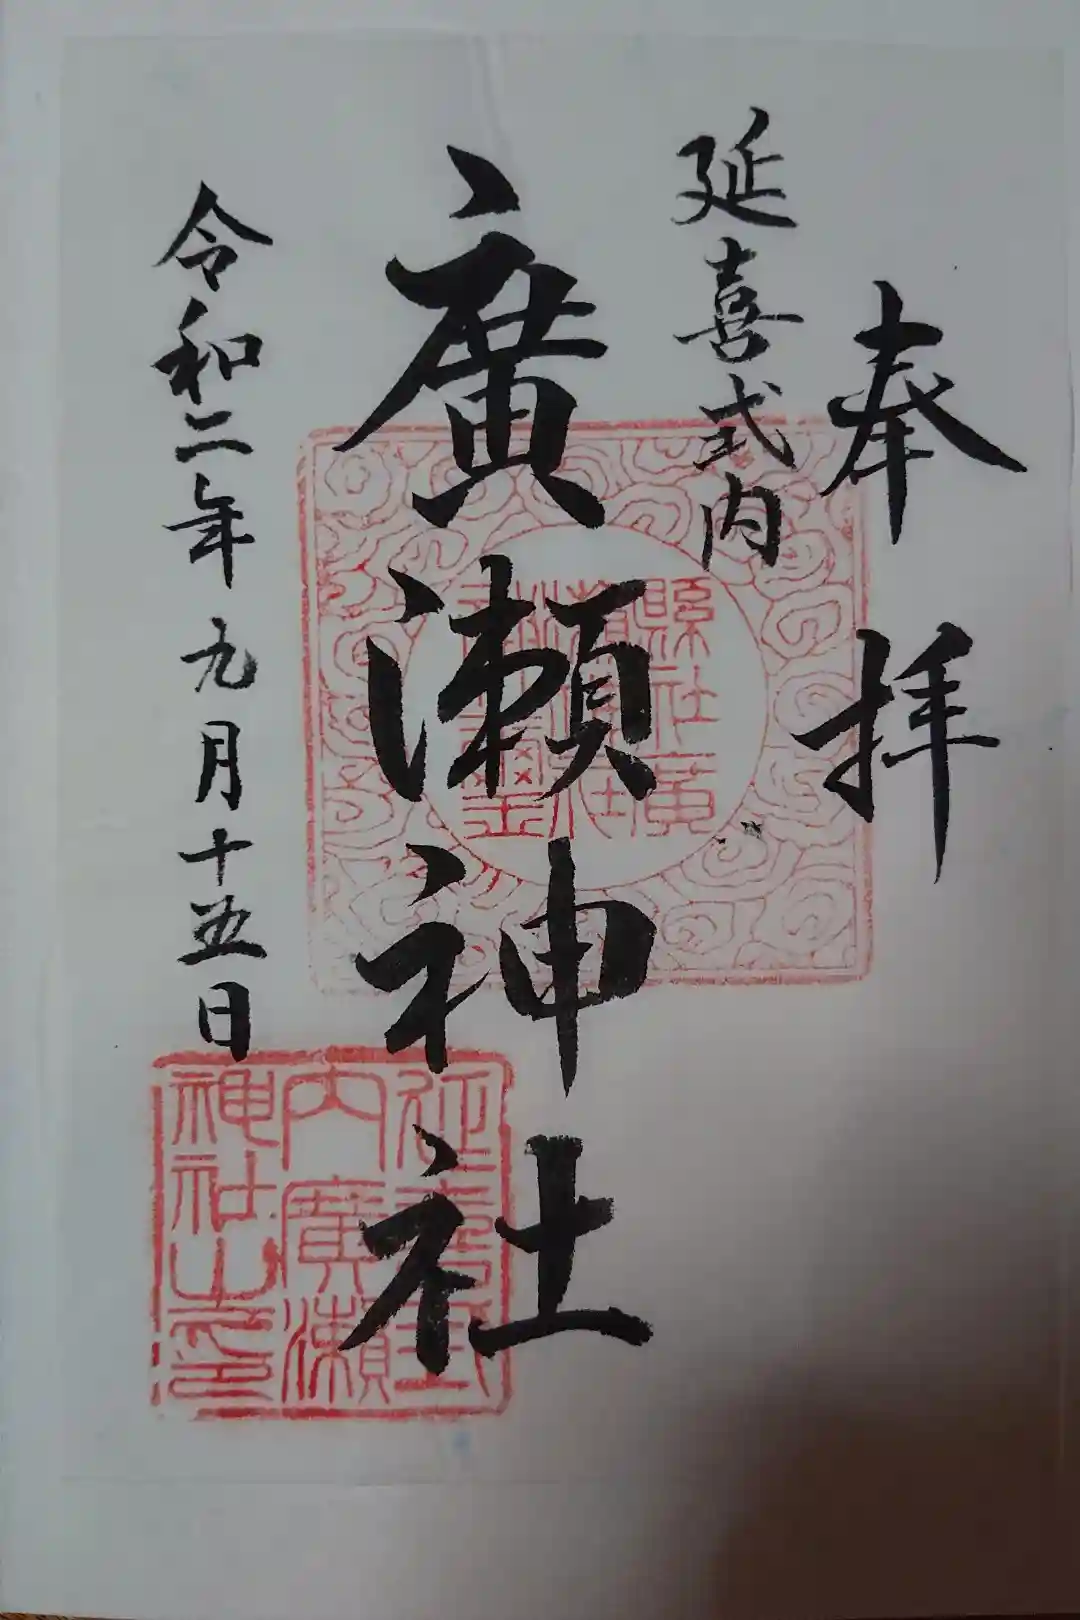 奉拝
延喜式内
廣瀬神社
令和二年九月十五日
延喜式
内廣瀬
神社之印